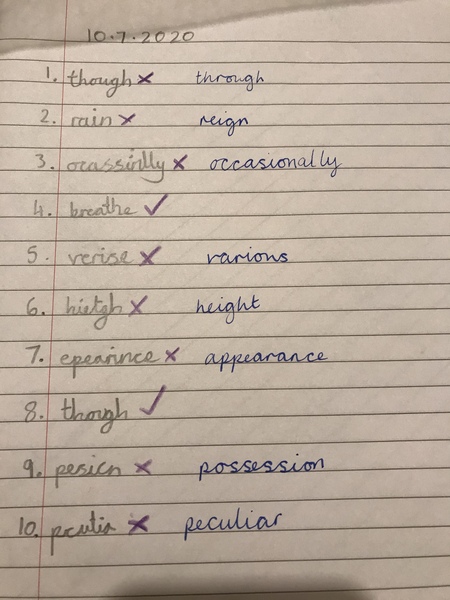 10.7.2020
1. though x through
2. rain x reign
3. ocassinlly x occasionally
4. breathe ✓
5. verise x various
6. hietgh x height
7. epearince x appearance
8. though ✓
9. x possession
10. x peculiar